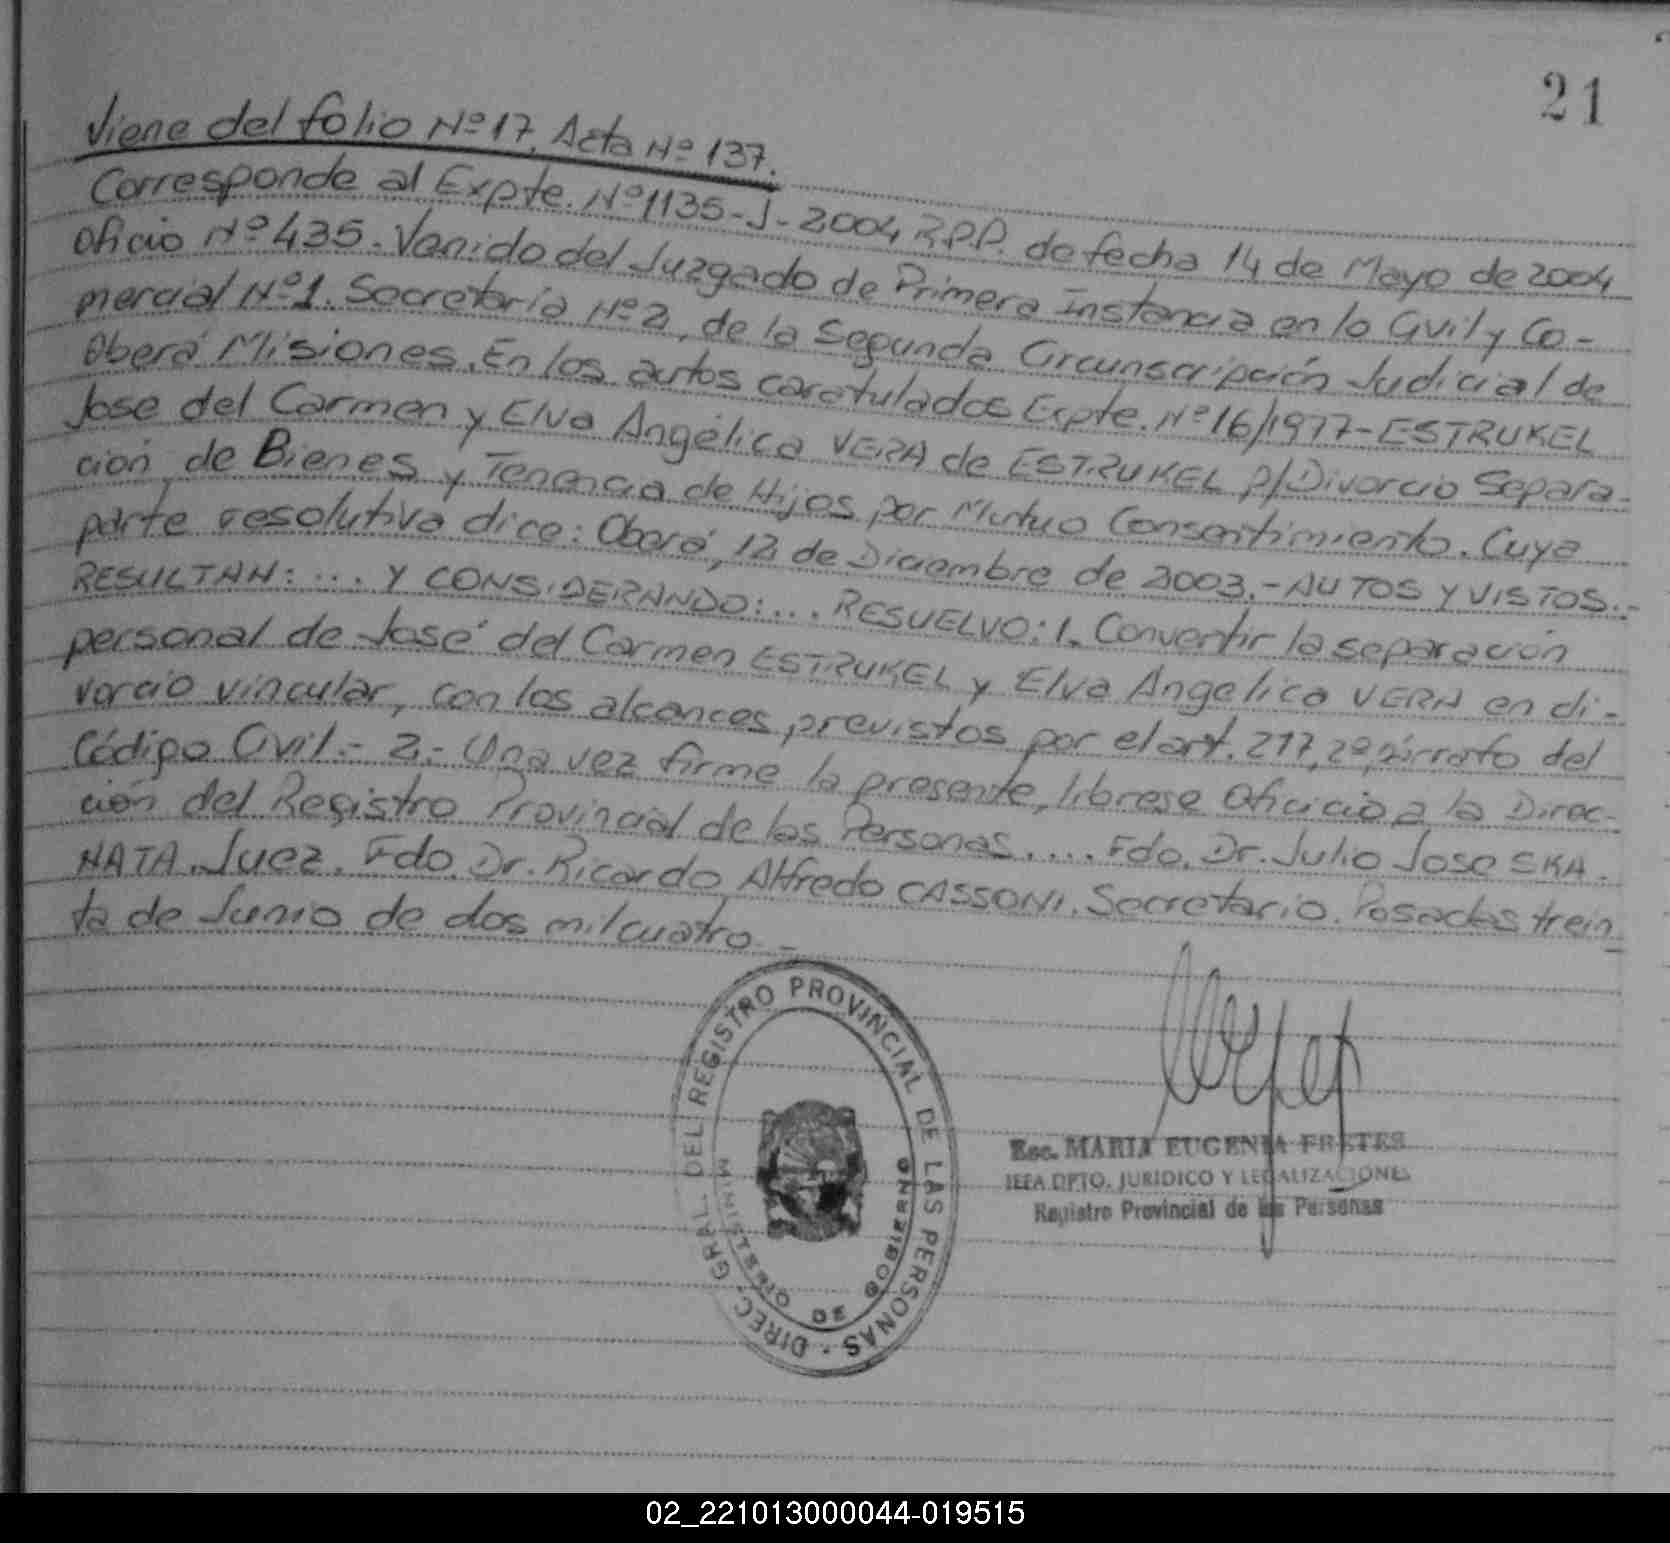 21
Viene del folio Nº 17, Acta Nº 137.
Corresponde al Expte. Nº 1135-J-2004 R.P.P. de fecha 14 de Mayo de 2004
Oficio Nº 435. Venido del Juzgado de Primera Instancia en lo Civil y Co-
mercial Nº 1. Secretaría Nº 2, de la Segunda Circunscripción Judicial de
Oberá Misiones. En los autos caratulados Expte. Nº 16/1977-ESTRUKEL
Jose del Carmen y Elva Angélica VERA de ESTRUKEL p/Divorcio Separa-
ción de Bienes y Tenencia de Hijos por Mutuo Consentimiento. Cuya
parte resolutiva dice: Oberá, 12 de Diciembre de 2003.- AUTOS Y VISTOS..-
RESULTAN: ... Y CONSIDERANDO: ... RESUELVO: 1. Convertir la separación
personal de José del Carmen ESTRUKEL y Elva Angelica VERA en di-
vorcio vincular, con los alcances previstos por el art. 217, 2º párrafo del
Código Civil.- 2.- Una vez firme la presente, librese Oficicio a la Direc-
ción del Registro Provincial de las Personas.... Fdo. Dr. Julio Jose SKA-
NATA. Juez. Fdo. Dr. Ricardo Alfredo CASSONI. Secretario. Posadas trein-
ta de Junio de dos mil cuatro.-
DIREC. GRAL. DEL REGISTRO PROVINCIAL DE LAS PERSONAS -
MINISTERIO DE GOBIERNO
Esc. MARIA EUGENIA FRETES
JEFA DPTO. JURIDICO Y LEGALIZACIONES
Registro Provincial de las Personas
02_221013000044-019515